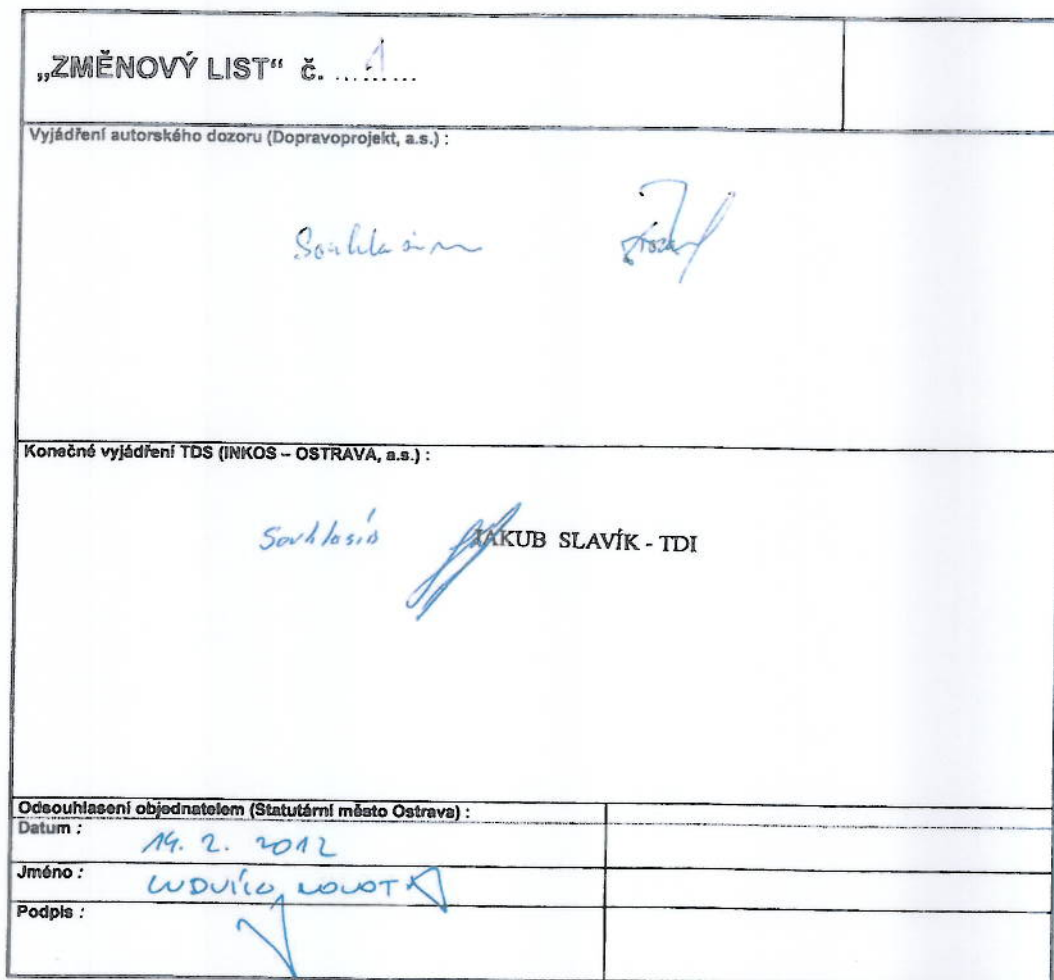 „ZMĚNOVÝ LIST“ č. ....1....
Vyjádření autorského dozoru (Dopravoprojekt, a.s.) :
Souhlasím
Konečné vyjádření TDS (INKOS – OSTRAVA, a.s.) :
Souhlasím JAKUB SLAVÍK - TDI
Odsouhlasení objednatelem (Statutární město Ostrava) :
Datum : 14. 2. 2012
Jméno :
Podpis :